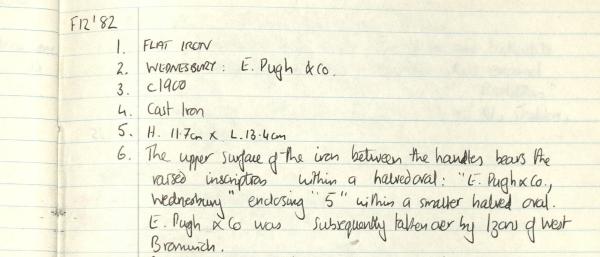 F12'82
1. FLAT IRON
2. WEDNESBURY: E. Pugh & Co.
3. c1900
4. Cast Iron
5. H. 11.7cm x L. 13.4cm
6. The upper surface of the iron between the handles bears the
raised inscription within a halved oval: "E. Pugh & Co.,
Wednesbury" enclosing "5" within a smaller halved oval.
E. Pugh & Co was subsequently taken over by Izons of West
Bromwich.